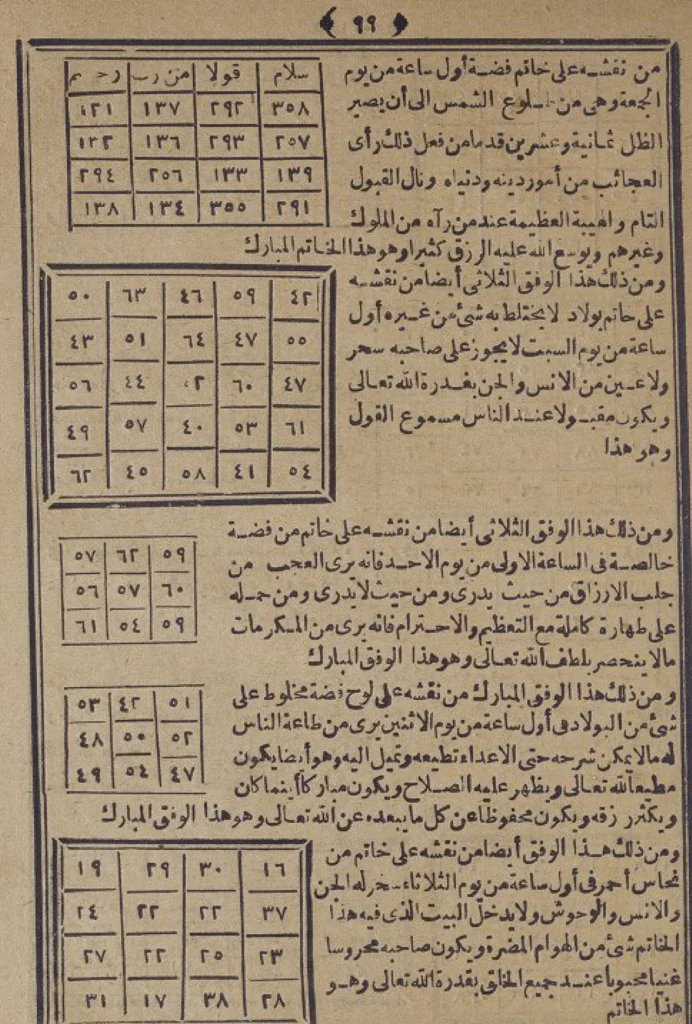 ٩٩
من نقشه على خاتم فضة أول ساعة من يوم
الجمعة وهى من طلوع الشمس الى أن يصير
الظل ثمانية وعشرين قدما من فعل ذلك رأى
العجائب من أمور دينه ودنياه ونال القبول
التام والهيبة العظيمة عند من رآه من الملوك
وغيرهم ويوسع الله عليه الرزق كثيرا وهو هذا الخاتم المبارك
سلام قولا من رب رحيم
٣٥٨ ٢٩٢ ١٣٧ ١٢١
٢٥٧ ٢٩٣ ١٣٦ ١٢٢
١٣٩ ١٣٣ ٢٥٦ ٢٩٤
٢٩١ ٣٥٥ ١٣٤ ١٣٨
ومن ذلك هذا الوفق الثلاثى أيضا من نقشه
على خاتم بولاد لا يختلط به شئ من غيره أول
ساعة من يوم السبت لا يجوز على صاحبه سحر
ولا عين من الانس والجن بقدرة الله تعالى
ويكون مقبولا عند الناس مسموع القول
وهو هذا
٤٢ ٥٩ ٤٦ ٦٣ ٥٠
٥٥ ٤٧ ٦٤ ٥١ ٤٣
٤٧ ٦٠ ٤٤ ٥٦
٦١ ٥٣ ٤٠ ٥٧ ٤٩
٥٤ ٤١ ٥٨ ٤٥ ٦٢
ومن ذلك هذا الوفق الثلاثى أيضا من نقشه على خاتم من فضة
خالصة فى الساعة الاولى من يوم الاحد فانه يرى العجب من
جلب الارزاق من حيث يدرى ومن حيث لا يدرى ومن حمله
على طهارة كاملة مع التعظيم والاحترام فانه يرى من المكرمات
مالا ينحصر بلطف الله تعالى وهو هذا الوفق المبارك
٥٩ ٦٢ ٥٧
٦٠ ٥٧ ٥٦
٥٩ ٥٤ ٦١
ومن ذلك هذا الوفق المبارك من نقشه على لوح فضة مخلوط على
شئ من البولاد فى أول ساعة من يوم الاثنين يرى من طاعة الناس
له مالا يمكن شرحه حتى الاعداء تطيعه وتميل اليه وهو أيضا يكون
مطيعا لله تعالى ويظهر عليه الصلاح ويكون مباركا أينما كان
ويكثر رزقه ويكون محفوظا عن كل ما يبعده عن الله تعالى وهو هذا الوفق المبارك
٥١ ٤٢ ٥٣
٥٢ ٥٠ ٤٨
٤٧ ٥٤ ٤٩
ومن ذلك هذا الوفق أيضا من نقشه على خاتم من
نحاس أحمر فى أول ساعة من يوم الثلاثاء سخر له الجن
والانس والوحوش ولا يدخل البيت الذى فيه هذا
الخاتم شئ من الهوام المضرة ويكون صاحبه محروسا
غنيا محبوبا عند جميع الخلق بقدرة الله تعالى وهو
هذا الخاتم
١٦ ٣٠ ٢٩ ١٩
٣٧ ٢٢ ٢٢ ٢٤
٢٣ ٢٥ ٢٢ ٢٧
٢٨ ٣٨ ١٧ ٣١